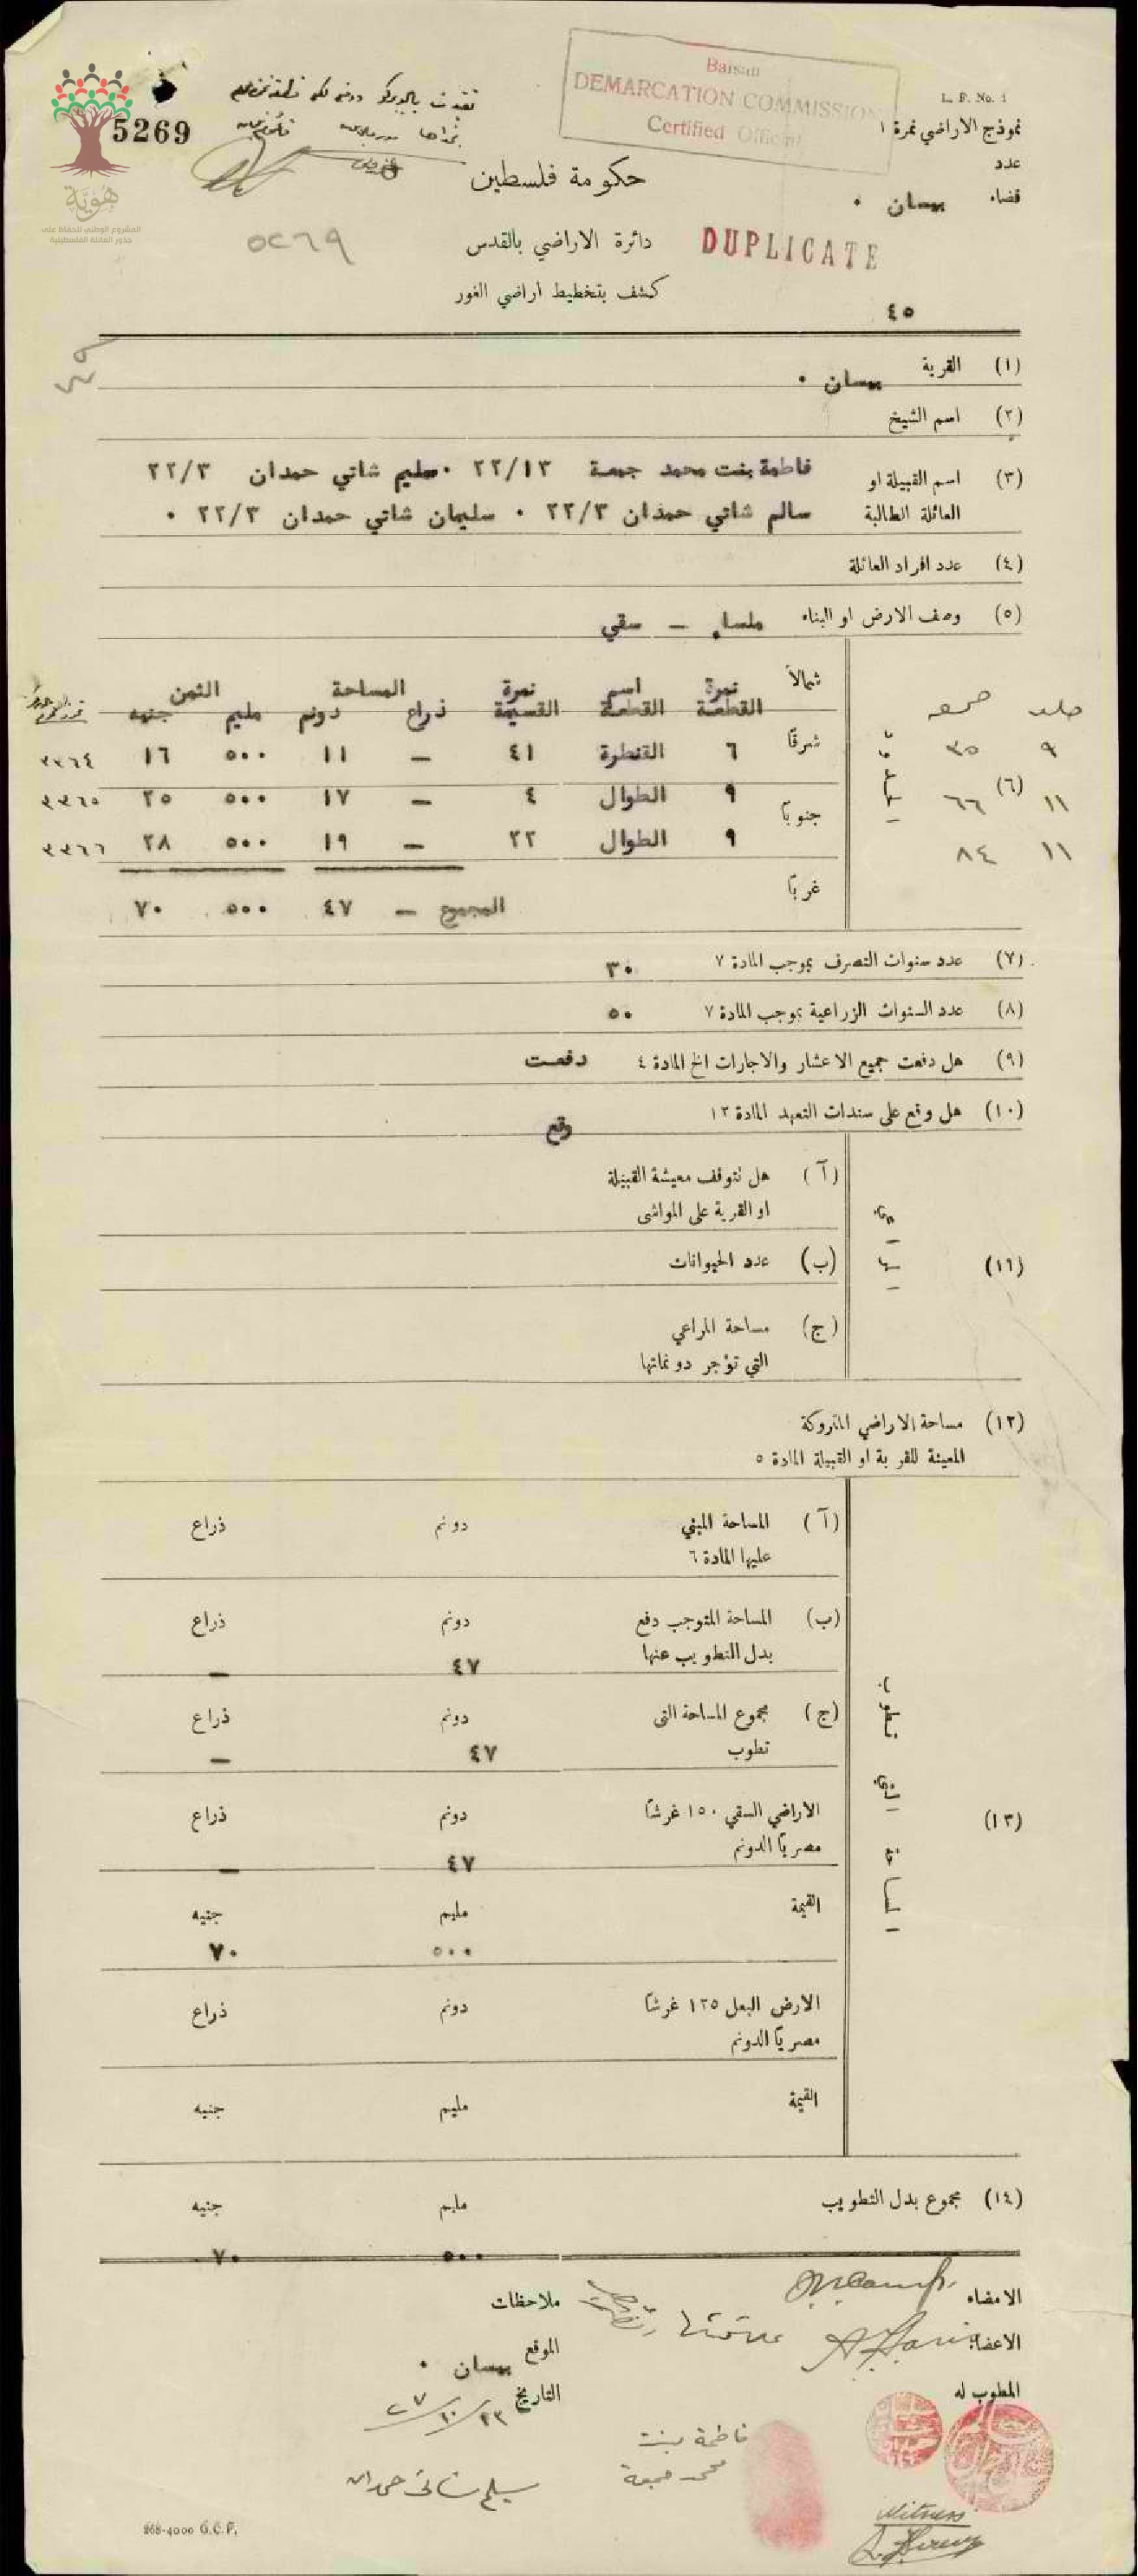 Baisan
DEMARCATION COMMISSION
Certified Official
L. P. No. 1
نموذج الاراضي نمرة ١
عدد
قضاء بيسان ٠
5269
هُويّة
المشروع الوطني للحفاظ على
جذور العائلة الفلسطينية
حكومة فلسطين
دائرة الاراضي بالقدس
DUPLICATE
٥٢٦٩
كشف بتخطيط اراضي الغور
٤٥
(١) القرية بيسان ٠
(٢) اسم الشيخ
(٣) اسم القبيلة او العائلة الطالبة
فاطمة بنت محمد جمعة ٢٢/١٣ ٠ سليم شاتي حمدان ٢٢/٣
سالم شاتي حمدان ٢٢/٣ ٠ سليمان شاتي حمدان ٢٢/٣ ٠
(٤) عدد افراد العائلة
(٥) وصف الارض او البناء ملساء — سقي
(٦)
شمالاً
شرقاً
جنوباً
غرباً
نمرة القطعة اسم القطعة نمرة القسيمة المساحة الثمن
ذراع دونم مليم جنيه
جلد صحيفه
٩ ٣٥ ٦ القنطرة ٤١ — ١١ ٥٠٠ ١٦ ٣٣٦٤
١١ ٦٦ ٩ الطوال ٤ — ١٧ ٥٠٠ ٢٥ ٣٣٦٥
١١ ٨٤ ٩ الطوال ٢٢ — ١٩ ٥٠٠ ٢٨ ٣٣٦٦
المجموع — ٤٧ ٥٠٠ ٧٠
(٧) عدد سنوات التصرف بموجب المادة ٧ ٣٠
(٨) عدد السنوات الزراعية بموجب المادة ٧ ٥٠
(٩) هل دفعت جميع الاعشار والاجارات الخ المادة ٤ دفعت
(١٠) هل وقع على سندات التعهد المادة ١٣ وقع
(١١)
(آ) هل تتوقف معيشة القبيلة
او القرية على المواشي
(ب) عدد الحيوانات
(ج) مساحة المراعي
التي تؤجر دونماتها
(١٢) مساحة الاراضي المتروكة
المعينة للقرية او القبيلة المادة ٥
(١٣) المساحة التي تطوب
(آ) المساحة المبني دونم ذراع
عليها المادة ٦
(ب) المساحة المتوجب دفع دونم ذراع
بدل التطويب عنها ٤٧ —
(ج) مجموع المساحة التي دونم ذراع
تطوب ٤٧ —
الاراضي السقي ١٥٠ غرشاً دونم ذراع
مصرياً الدونم ٤٧ —
القيمة مليم جنيه
٥٠٠ ٧٠
الارض البعل ١٢٥ غرشاً دونم ذراع
مصرياً الدونم
القيمة مليم جنيه
(١٤) مجموع بدل التطويب مليم جنيه
٥٠٠ ٧٠
الامضاء
ملاحظات
الاعضاء
الموقع بيسان ٠
التاريخ ٢٣/١٠/٢٧
المطوب له
فاطمة بنت
محمد جمعة
سليم شاتي حمدان
Witness
868-4000 G.C.P.